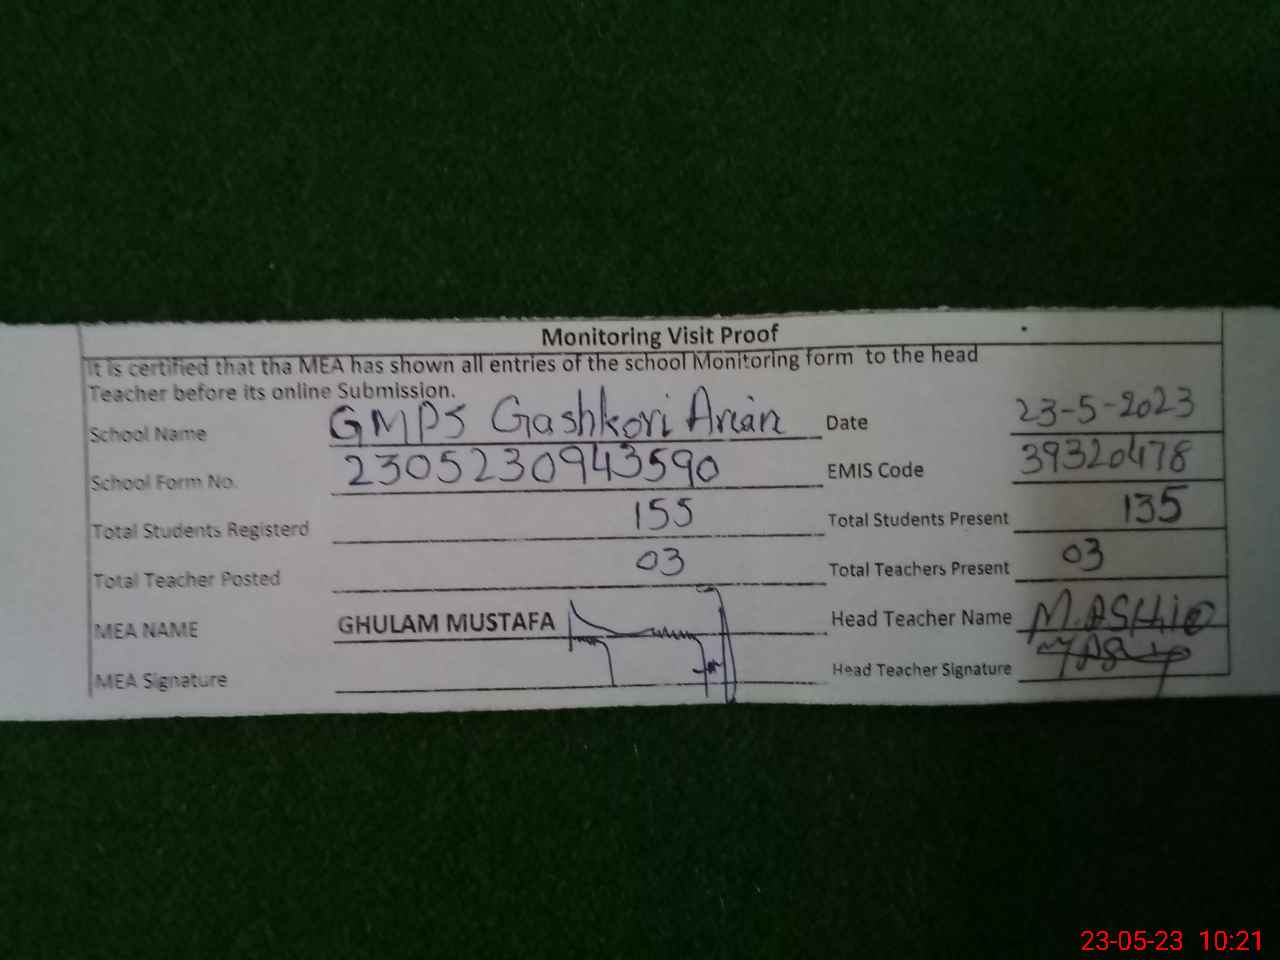 Monitoring Visit Proof
It is certified that tha MEA has shown all entries of the school Monitoring form to the head
Teacher before its online Submission.
School Name GMPS Gashkori Arian Date 23-5-2023
School Form No. 2305230943590 EMIS Code 39320478
Total Students Registerd 155 Total Students Present 135
Total Teacher Posted 03 Total Teachers Present 03
MEA NAME GHULAM MUSTAFA Head Teacher Name
MEA Signature Head Teacher Signature
23-05-23 10:21